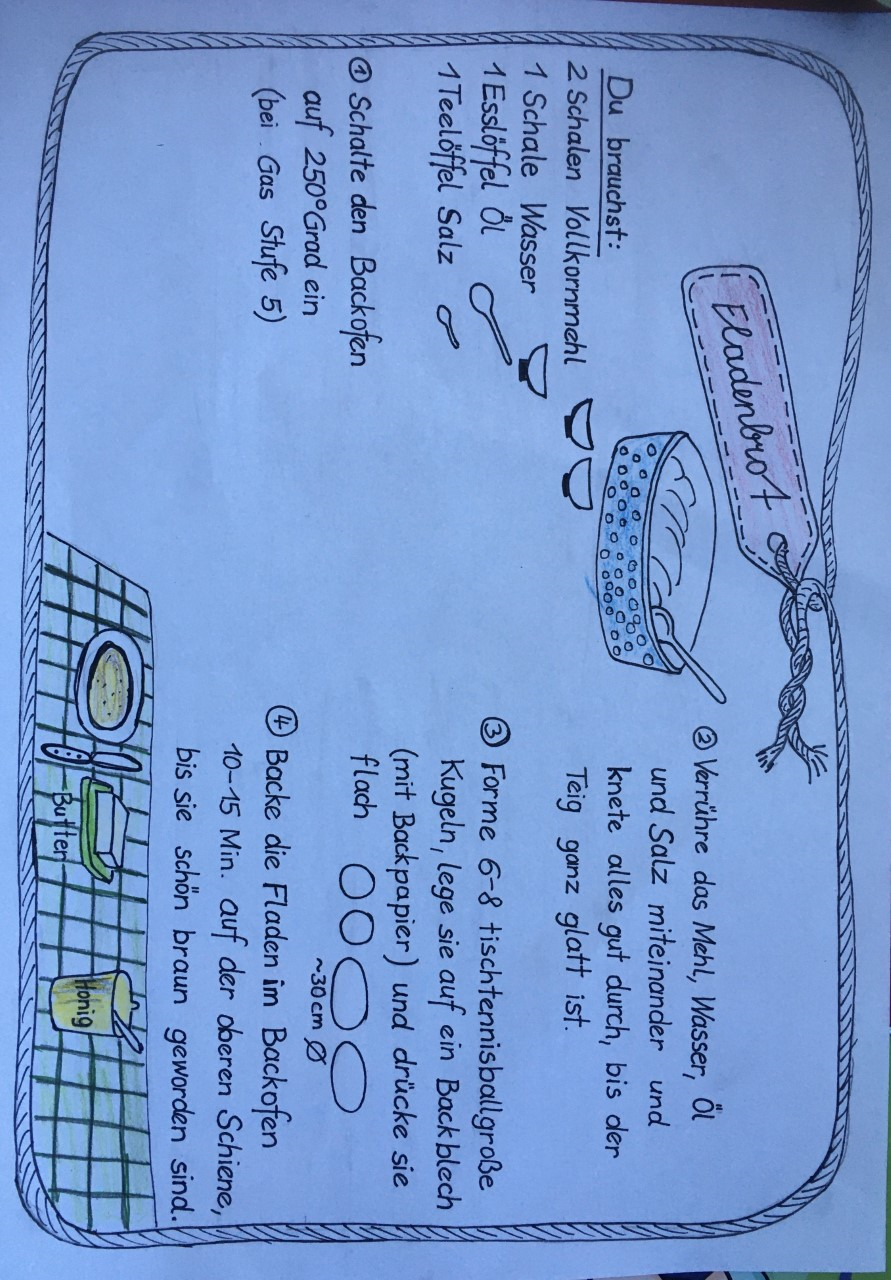 Fladenbrot
Du brauchst:
2 Schalen Vollkornmehl
1 Schale Wasser
1 Esslöffel Öl
1 Teelöffel Salz
① Schalte den Backofen
auf 250° Grad ein
(bei Gas Stufe 5)
② Verrühre das Mehl, Wasser, Öl
und Salz miteinander und
knete alles gut durch, bis der
Teig ganz glatt ist.
③ Forme 6-8 tischtennisballgroße
Kugeln, lege sie auf ein Backblech
(mit Backpapier) und drücke sie
flach
~30cm Ø
④ Backe die Fladen im Backofen
10-15 Min. auf der oberen Schiene,
bis sie schön braun geworden sind.
Butter
Honig